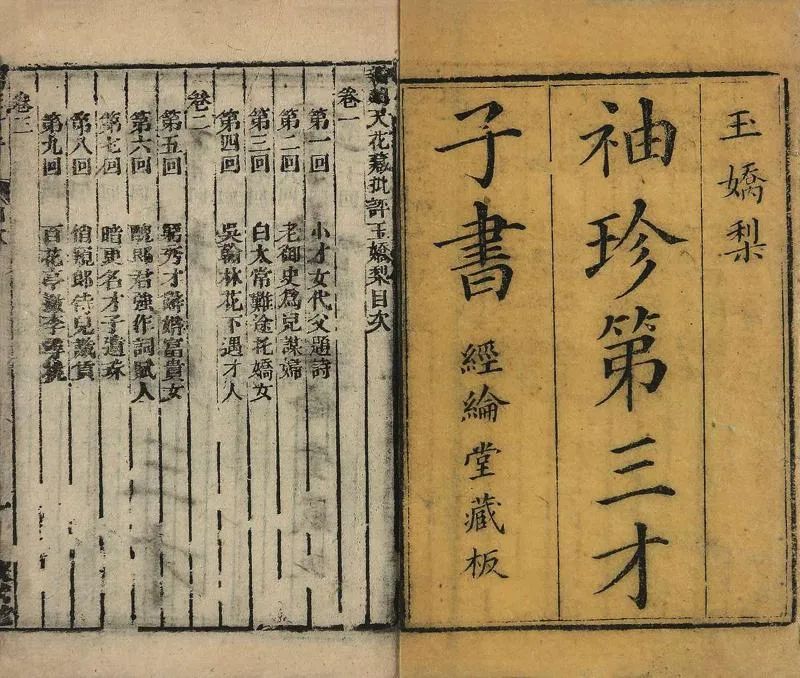 玉嬌梨
袖珍第三才
子書 經綸堂藏板
天花藏批評玉嬌梨目次
卷一
第一回 小才女代父題詩
第二回 老御史爲兒謀婦
第三回 白太常難途托嬌女
第四回 吳翰林花下遇才人
卷二
第五回 窮秀才辭婚富貴女
第六回 醜郎君強作詞賦人
第七回 暗更名才子遺珠
第八回 悄窺郎侍兒識貨
第九回 百花亭撇李尋桃
卷三